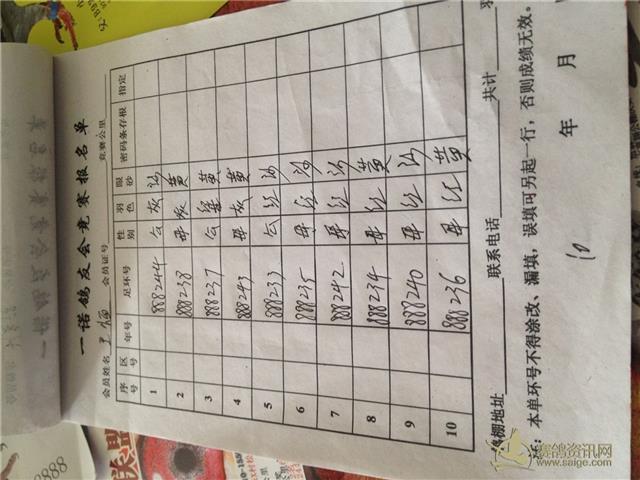 一诺鸽友会竞赛报名单
会员姓名 会员证号 竞赛公里
序号 区号 年号 足环号 性别 羽色 眼砂 密码条存根 指定
1 888244 灰 沙
2 888238 灰 黄
3 888237 黄
4 888243 灰 黄
5 888233 红 沙
6 888235 红 沙
7 888242 红 沙
8 888234 红 黄
9 888240 红 沙
10 888236 红 黄
鸽棚地址 联系电话 共计 羽
注：本单环号不得涂改、漏填，误填可另起一行，否则成绩无效。
年 月
10
赛鸽资讯网
www.saige.com